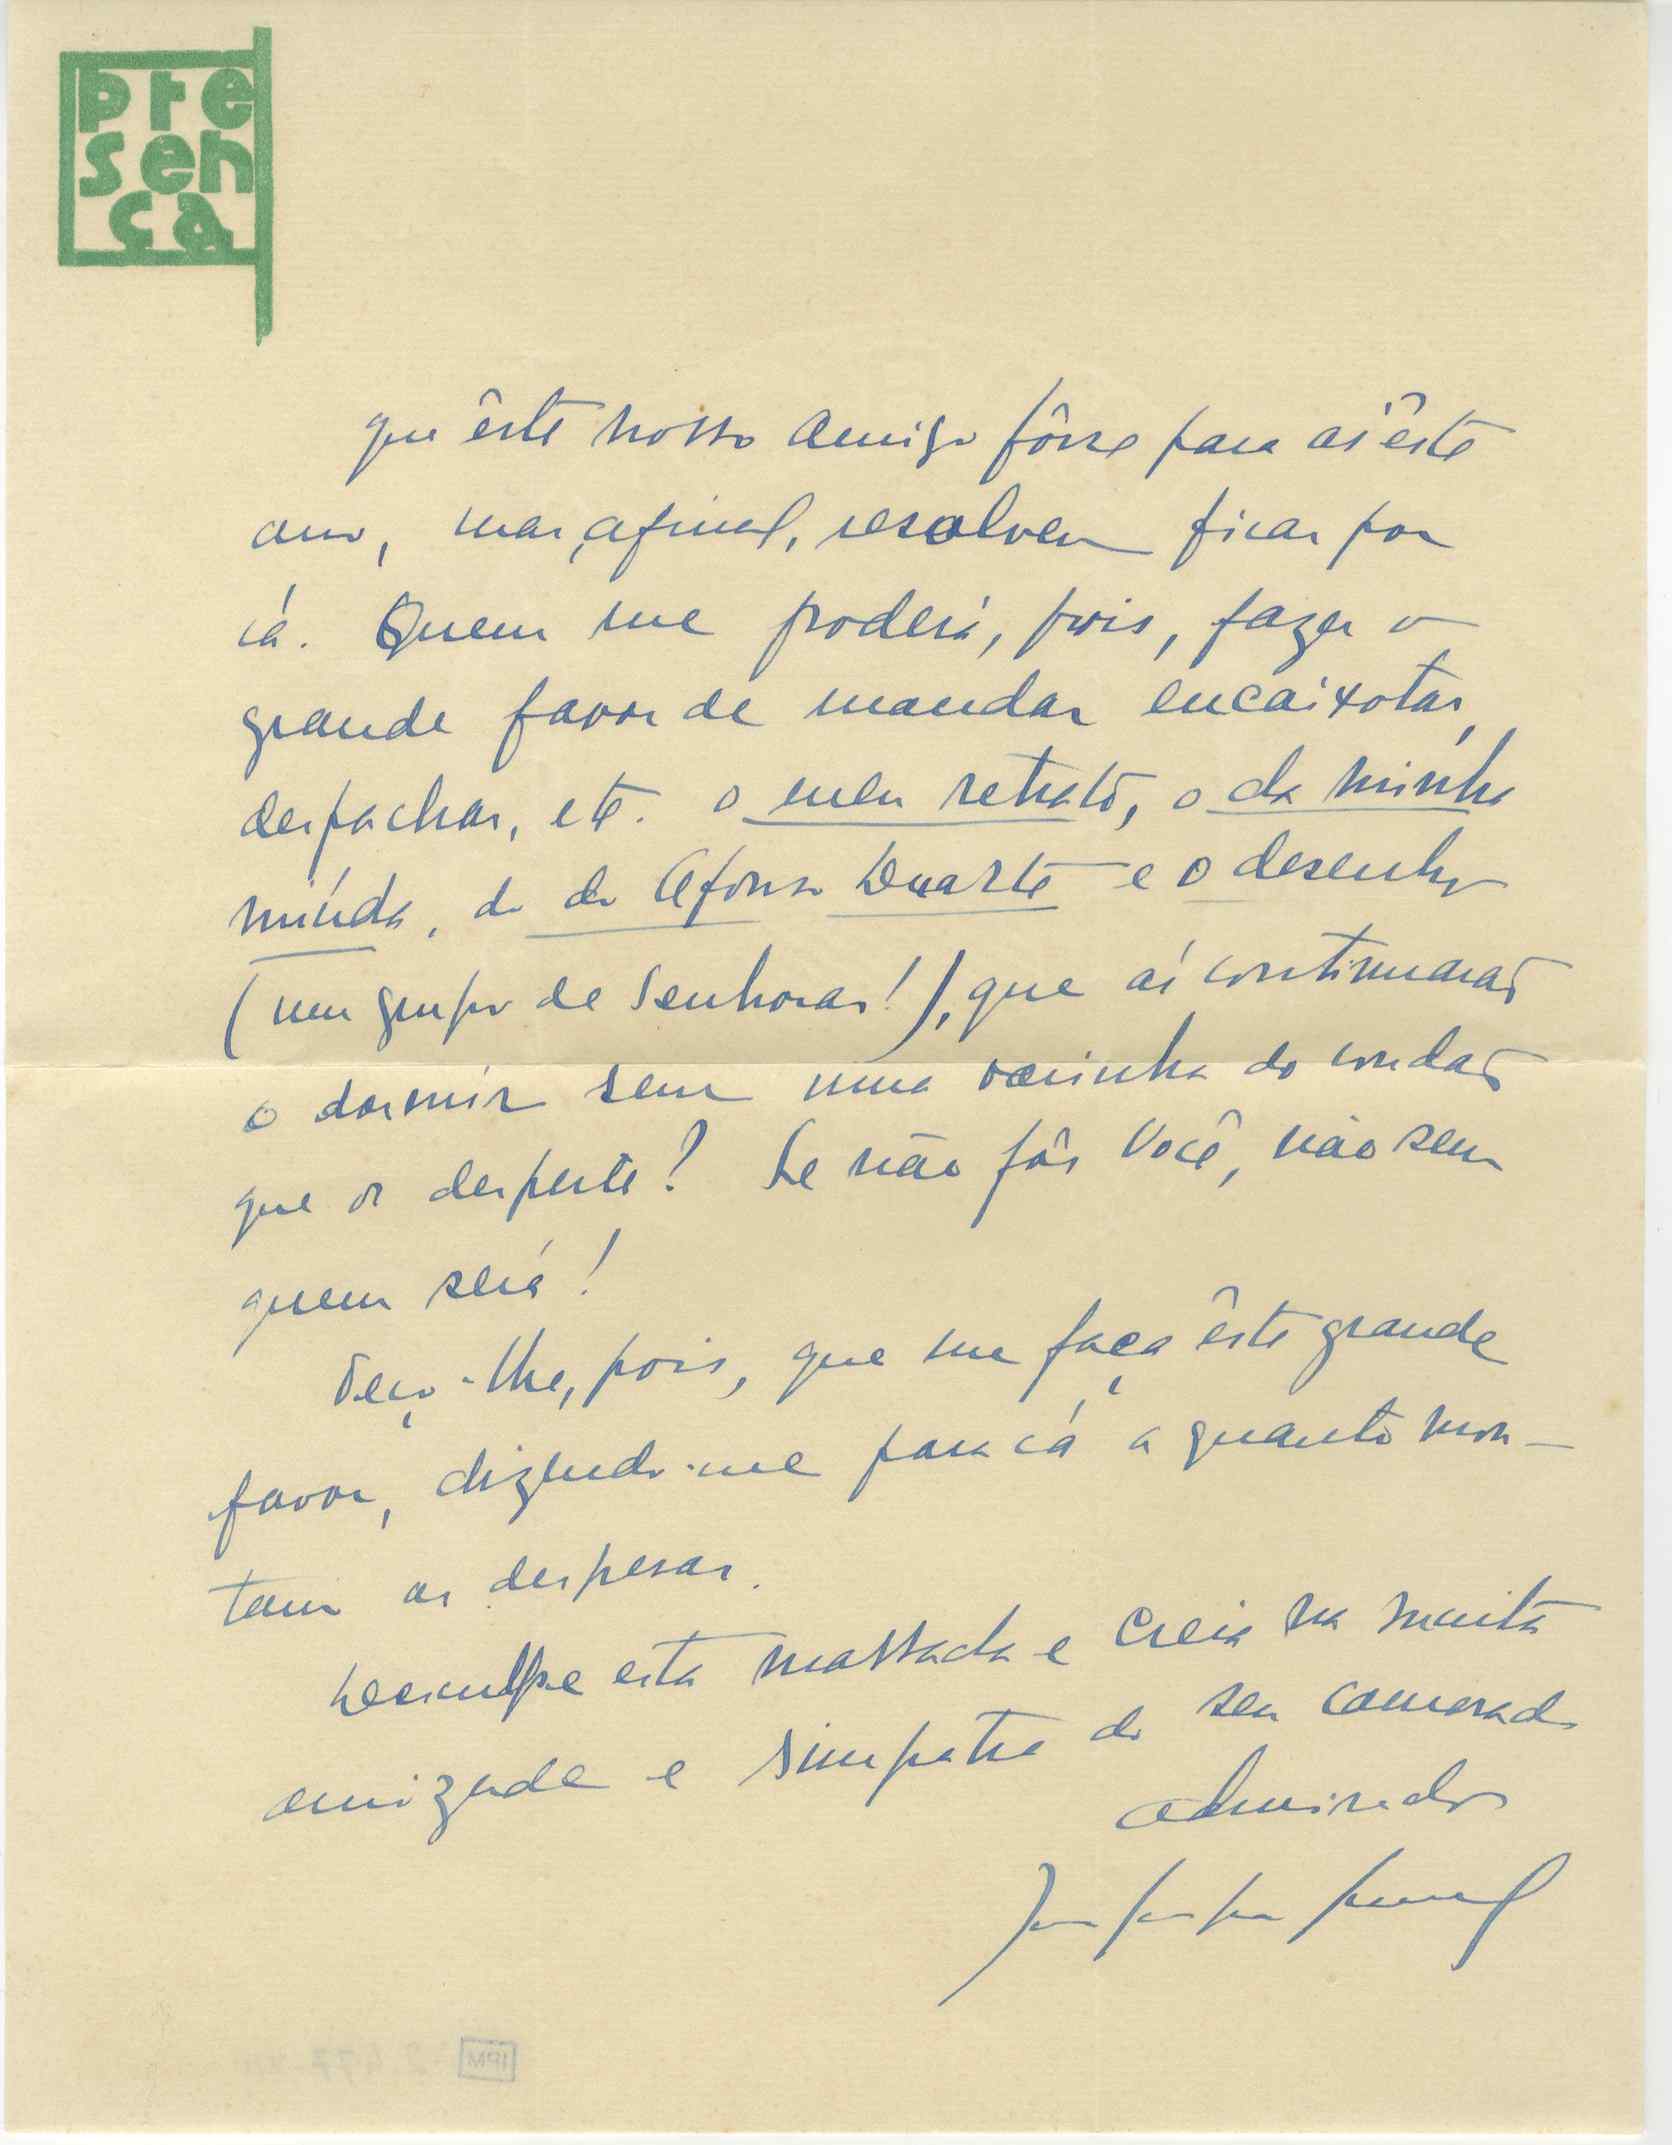 pre
sen
ça
que êste nosso amigo fôsse para aí êste
ano, mas, afinal, resolveu ficar por
cá. Quem me poderá, pois, fazer o
grande favor de mandar encaixotar,
despachar, etc. o meu retrato, o da minha
miúda, o do Afonso Duarte e o desenho
(um grupo de senhoras!), que aí continuarão
a dormir sem uma varinha do condão
que os desperte? Se não fôr Você, não sem
quem será!
Peço-lhe, pois, que me faça êste grande
favor, dizendo-me para cá a quanto mon-
tam as despesas.
Desculpe esta massada e creia na muita
amizade e simpatia do seu camarada
admirador
IPM